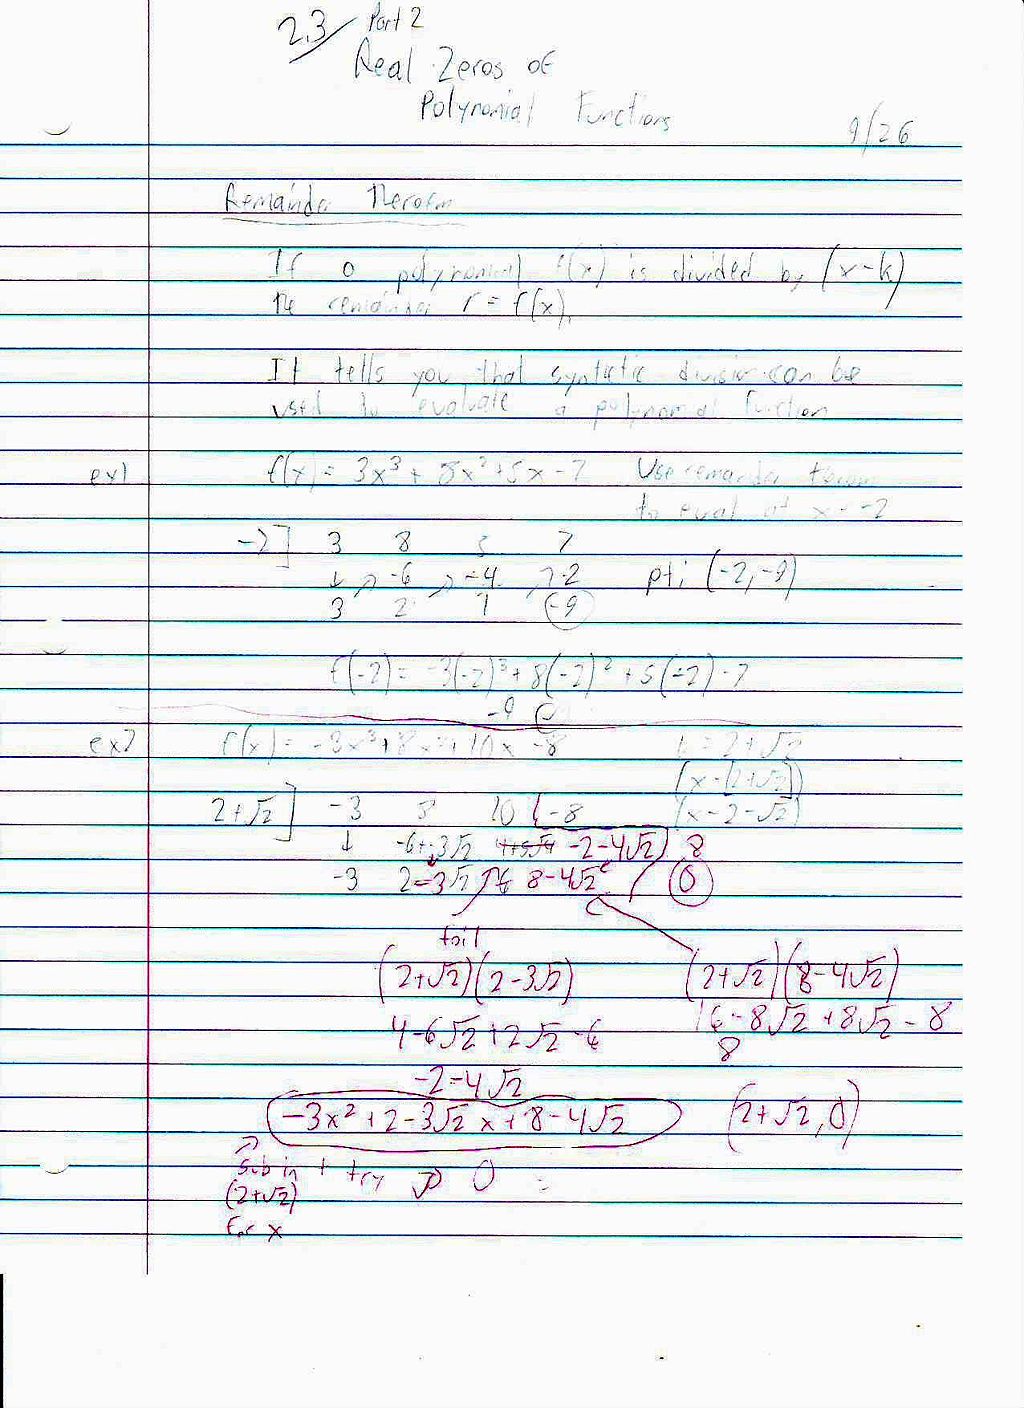 2.3 Part 2
Real Zeros of
Polynomial Functions
9/26
Remainder Therorem
If a polynomial f(x) is divided by (x-k)
the remainder r = f(x).
It tells you that syntetic division can be
used to evaluate a polynomial function
ex1 f(x) = 3x³ + 8x² + 5x - 7 Use remainder
to eval at x = -2
-2] 3 8 5 7
↓ -6 -4 -2 pt: (-2, -9)
3 2 1 -9
f(-2) = -3(-2)³ + 8(-2)² + 5(-2) - 7
-9
ex2 f(x) = -3x³ + 8x² + 10x - 8 k = 2+√2
(x-(2+√2))
2+√2] -3 8 10 -8 (x-2-√2)
↓ -6+-3√2 -2-4√2 8
-3 2-3√2 8-4√2 0
foil
(2+√2)(2-3√2) (2+√2)(8-4√2)
4-6√2+2√2-6 16-8√2+8√2-8
8
-2-4√2
-3x²+2-3√2 x+8-4√2 (2+√2, 0)
sub in + try 0
(2+√2)
for x